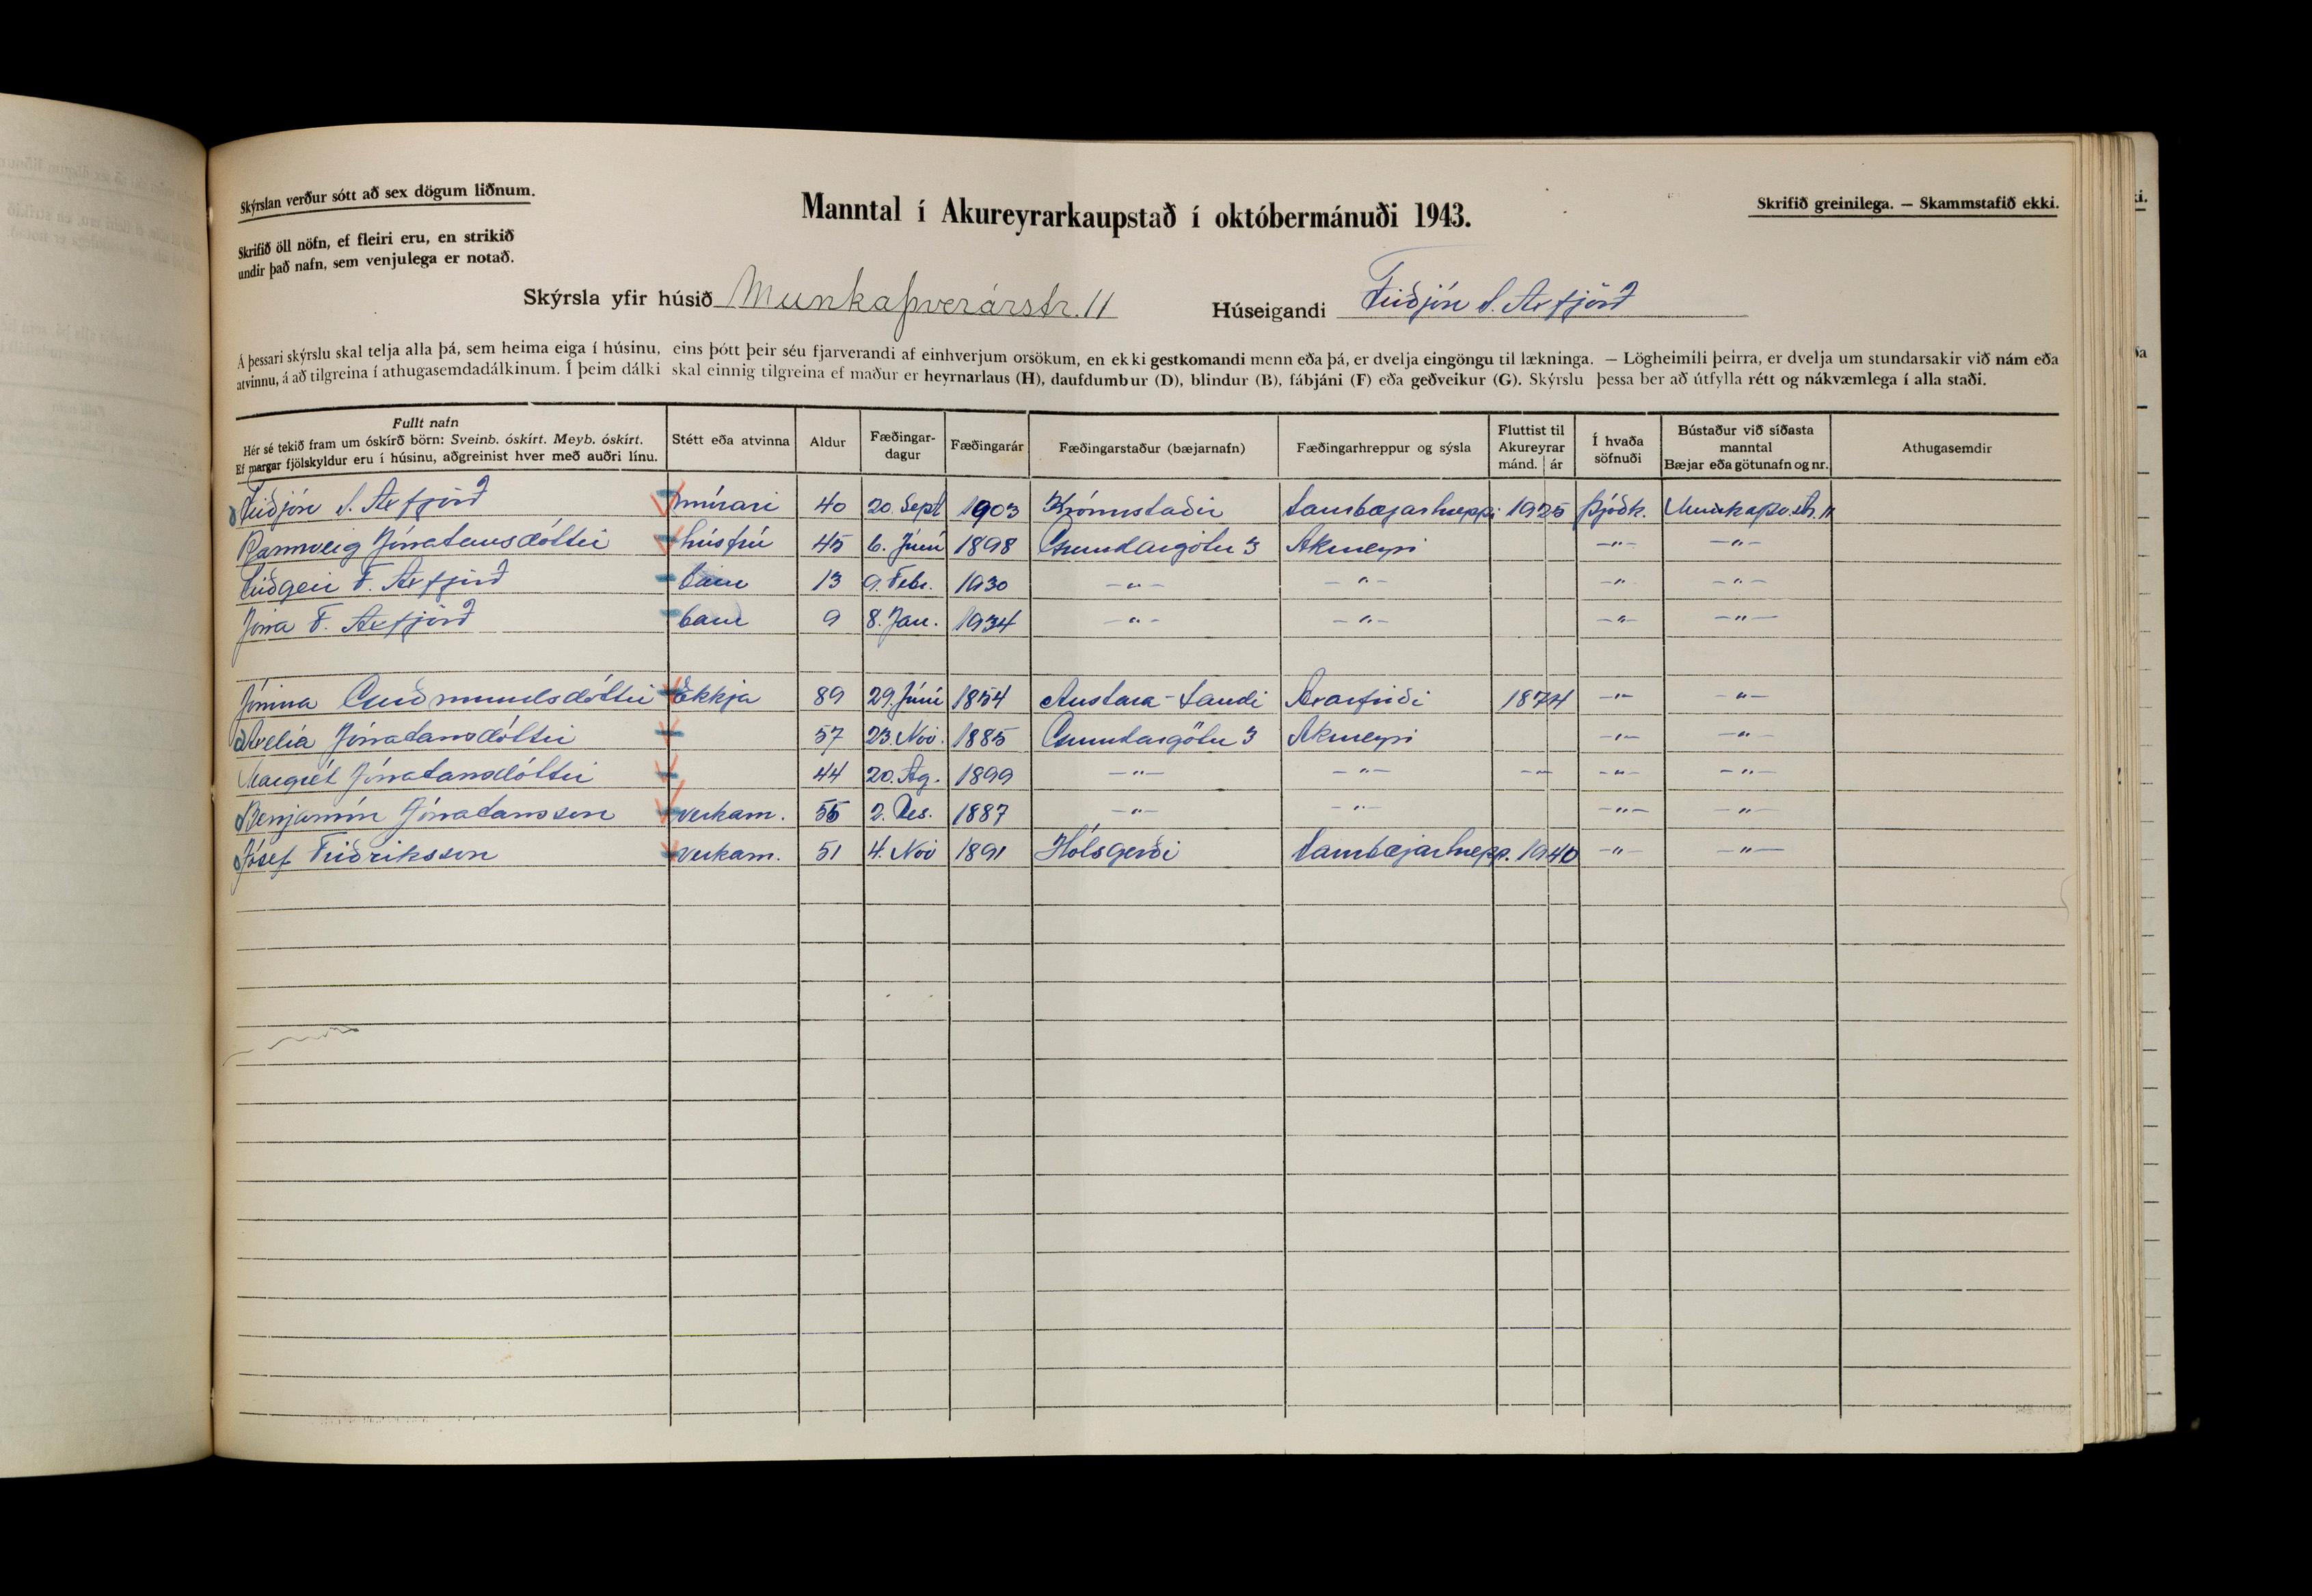 Skýrslan verður sótt að sex dögum liðnum.
Manntal í Akureyrarkaupstað í októbermánuði 1943.
Skrifið greinilega. — Skammstafið ekki.
Skrifið öll nöfn, ef fleiri eru, en strikið
undir það nafn, sem venjulega er notað.
Skýrsla yfir húsið Munkaþverárstr. 11 Húseigandi Friðjón S. Axfjörð
Á þessari skýrslu skal telja alla þá, sem heima eiga í húsinu, eins þótt þeir séu fjarverandi af einhverjum orsökum, en ekki gestkomandi menn eða þá, er dvelja eingöngu til lækninga. — Lögheimili þeirra, er dvelja um stundarsakir við nám eða
atvinnu, á að tilgreina í athugasemdadálkinum. Í þeim dálki skal einnig tilgreina ef maður er heyrnarlaus (H), daufdumbur (D), blindur (B), fábjáni (F) eða geðveikur (G). Skýrslu þessa ber að útfylla rétt og nákvæmlega í alla staði.
Fullt nafn
Hér sé tekið fram um óskírð börn: Sveinb. óskírt. Meyb. óskírt.
Ef margar fjölskyldur eru í húsinu, aðgreinist hver með auðri línu.
Stétt eða atvinna
Aldur
Fæðingar-
dagur
Fæðingarár
Fæðingarstaður (bæjarnafn)
Fæðingarhreppur og sýsla
Fluttist til
Akureyrar
mánd. ár
Í hvaða
söfnuði
Bústaður við síðasta
manntal
Bæjar eða götunafn og nr.
Athugasemdir
Friðjón S. Axfjörð múrari 40 20. Sept 1903 Krónustaðir Saurbæjarhrepp. 1925 Þjóðk. Munkaþv.str. 11
Rannveig Jónatansdóttir húsfrú 45 6. Júní 1898 Grundargötu 3 Akureyri —"— —"—
Friðgeir F. Axfjörð barn 13 9. Febr. 1930 —"— —"— —"— —"—
Jóna F. Axfjörð barn 9 8. Jan. 1934 —"— —"— —"— —"—
Jónína Guðmundsdóttir Ekkja 89 29. Júní 1854 Austara-Landi Axarfirði 1874 —"— —"—
Axelía Jónatansdóttir 57 23. Nov. 1885 Grundargötu 3 Akureyri —"— —"—
Margrét Jónatansdóttir 44 20. Ag. 1899 —"— —"— —"— —"— —"—
Benjamín Jónatansson verkam. 55 2. Des. 1887 —"— —"— —"— —"—
Jósef Friðriksson verkam. 51 4. Nov 1891 Hólsgerði Saurbæjarhrepp. 1940 —"— —"—